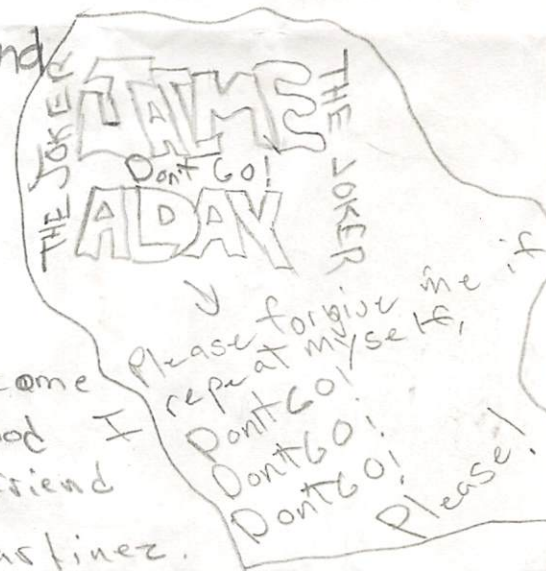 nd
THE JOKER
THE JOKER
Dont Go!
ADAY
Please forgive me if
repeat myself,
Dont GO!
Dont GO!
Dont GO!
Please!
come
od I
friend
artinez.